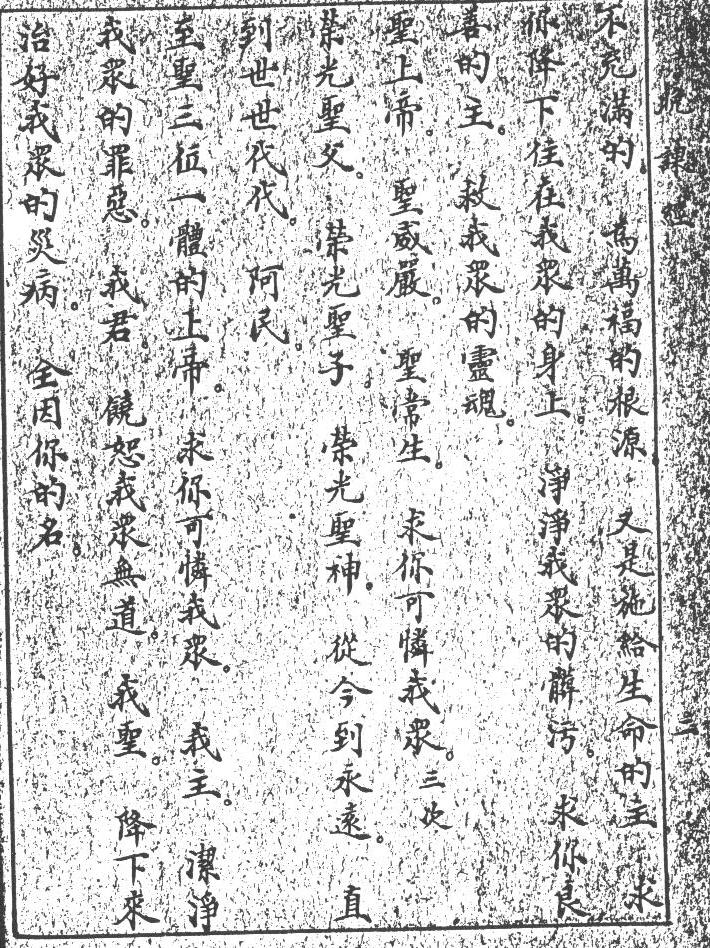 晚課經 三
不充滿的。為萬福的根源。又是施給生命的主。求
你降下住在我眾的身上。淨淨我眾的髒污。求你良
善的主。救我眾的靈魂。
聖上帝。聖威嚴。聖常生。求你可憐我眾。三次
榮光聖父。榮光聖子。榮光聖神。從今到永遠。直
到世世代代。阿民。
至聖三位一體的上帝。求你可憐我眾。我主。潔淨
我眾的罪惡。我君。饒恕我眾無道。我聖。降下來
治好我眾的災病。全因你的名。